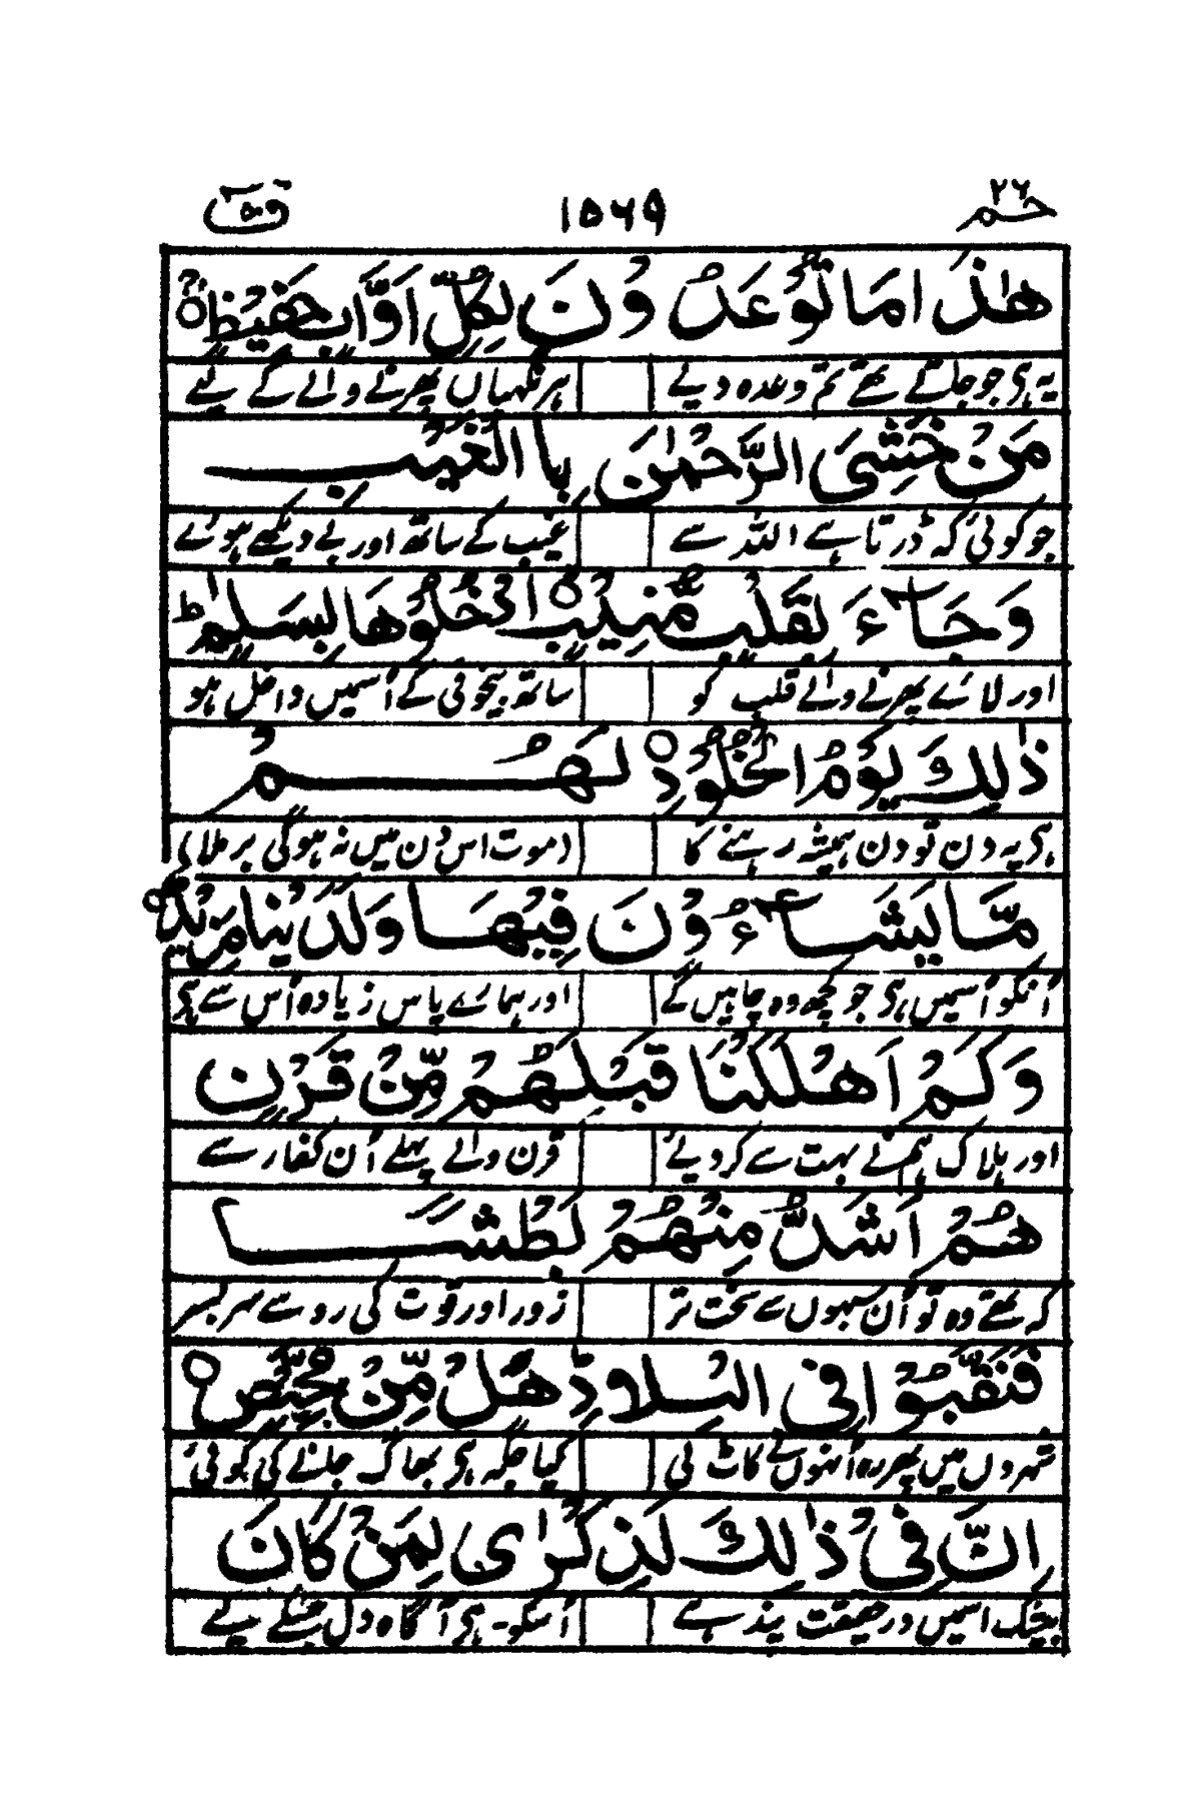 حٰمٓ ٢٦ ١٥٦٩ قٓ ٥٠
هٰذَا مَا تُوْعَدُوْنَ لِكُلِّ اَوَّابٍ حَفِيْظٍ
یہ ہی جو جسکے تھے تم وعدہ دیے ہر نگہباں پھرنے والے کے لیے
مَنْ خَشِیَ الرَّحْمٰنَ بِالْغَيْبِ
جو کوئی کہ ڈرتا ہے اللہ سے غیب کے ساتھ اور بے دیکھے ہوئے
وَجَآءَ بِقَلْبٍ مُّنِيْبٍ ادْخُلُوْهَا بِسَلٰمٍ ط
اور لائے پھرنے والے قلب کو ساتھ بیخوفی کے اُسمیں داخل ہو
ذٰلِكَ يَوْمُ الْخُلُوْدِ لَهُمْ
ہی یہ دن تو دن ہمیشہ رہنے کا (موت اس دن میں نہ ہوگی برملا)
مَّا يَشَآءُوْنَ فِيْهَا وَلَدَيْنَا مَزِيْدٌ
اُنکو اُسمیں ہی جو کچھ وہ چاہیں گے اور ہمارے پاس زیادہ اُس سے ہی
وَكَمْ اَهْلَكْنَا قَبْلَهُمْ مِّنْ قَرْنٍ
اور ہلاک ہم نے بہت سے کردیے قرن والے پہلے اُن کفار سے
هُمْ اَشَدُّ مِنْهُمْ بَطْشًا
کہ تھے وہ تو اُن سبہوں سے سخت تر زور اور قوت کی رو سے سربسر
فَنَقَّبُوْا فِی الْبِلَادِ هَلْ مِنْ مَّحِيْصٍ
شہروں میں پھر رہ اُنہوں نے کاٹ لی کیا جگہ ہی بھاگ جانے کی کوئی
اِنَّ فِیْ ذٰلِكَ لَذِكْرٰی لِمَنْ كَانَ
بیشک اسمیں درحقیقت پند ہے اُسکو۔ ہی آگاہ دل جسکے لیے